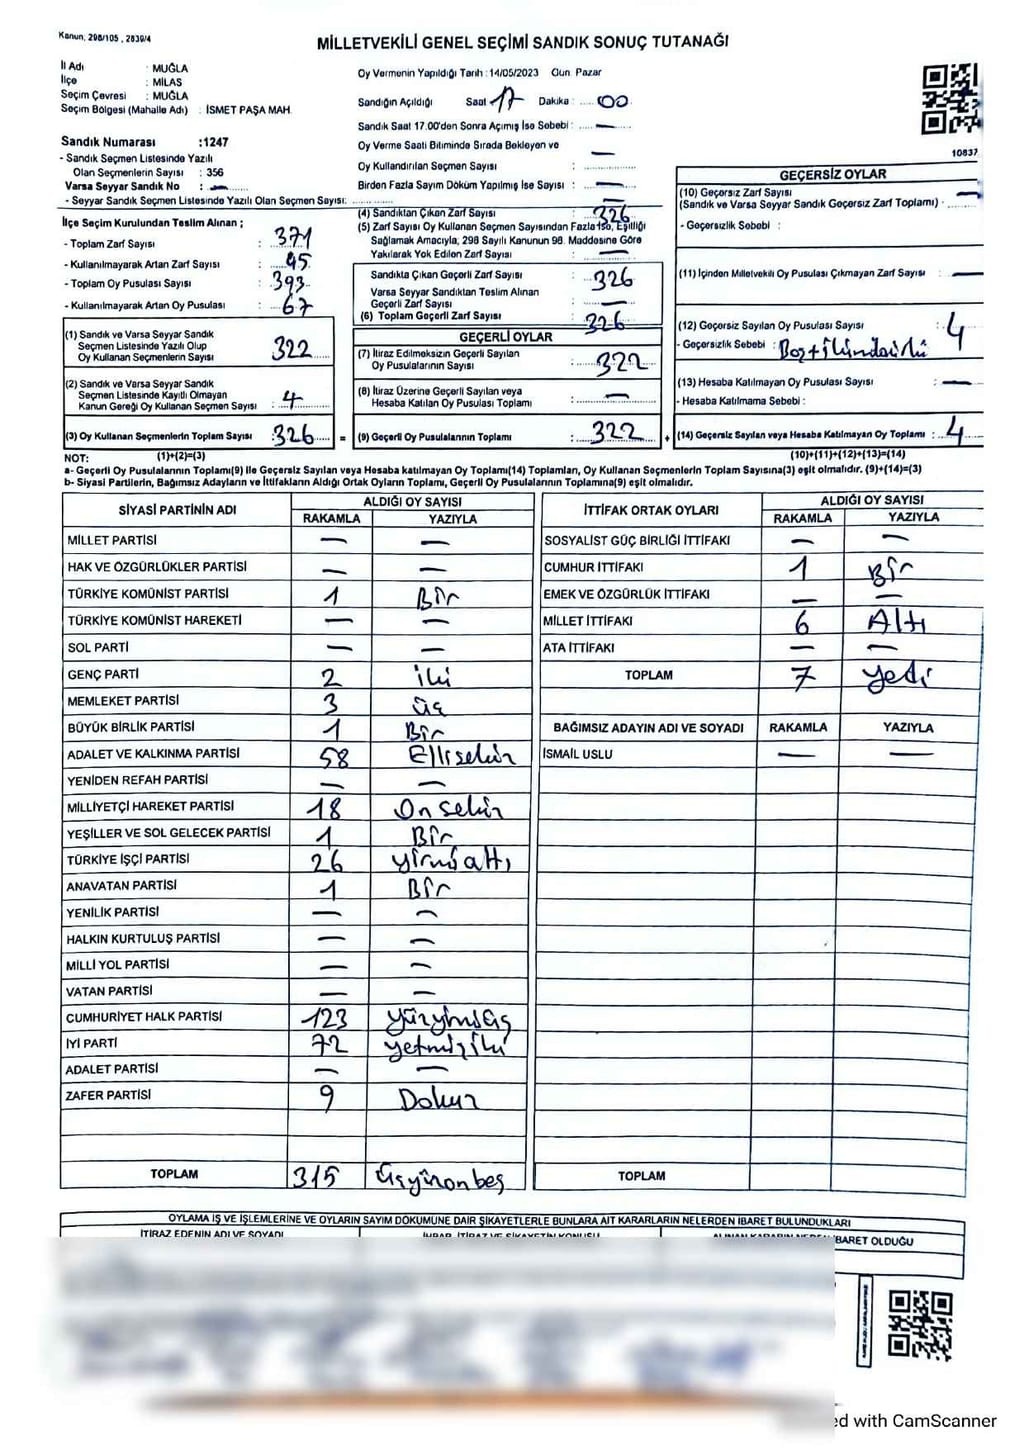 Kanun, 298/105 , 2839/4
MİLLETVEKİLİ GENEL SEÇİMİ SANDIK SONUÇ TUTANAĞI
İl Adı : MUĞLA
İlçe : MİLAS
Seçim Çevresi : MUĞLA
Seçim Bölgesi (Mahalle Adı) : İSMET PAŞA MAH.
Sandık Numarası :1247
- Sandık Seçmen Listesinde Yazılı
Olan Seçmenlerin Sayısı : 356
Varsa Seyyar Sandık No : —
- Seyyar Sandık Seçmen Listesinde Yazılı Olan Seçmen Sayısı:
İlçe Seçim Kurulundan Teslim Alınan ;
- Toplam Zarf Sayısı : 371
- Kullanılmayarak Artan Zarf Sayısı : 45
- Toplam Oy Pusulası Sayısı : 393
- Kullanılmayarak Artan Oy Pusulası : 67
(1) Sandık ve Varsa Seyyar Sandık
Seçmen Listesinde Yazılı Olup
Oy Kullanan Seçmenlerin Sayısı : 322
(2) Sandık ve Varsa Seyyar Sandık
Seçmen Listesinde Kayıtlı Olmayan
Kanun Gereği Oy Kullanan Seçmen Sayısı : 4
(3) Oy Kullanan Seçmenlerin Toplam Sayısı : 326
Oy Vermenin Yapıldığı Tarih : 14/05/2023 Gün: Pazar
Sandığın Açıldığı Saat 17 Dakika : 00
Sandık Saat 17.00'den Sonra Açımış İse Sebebi : —
Oy Verme Saati Bitiminde Sırada Bekleyen ve
Oy Kullandırılan Seçmen Sayısı : —
Birden Fazla Sayım Döküm Yapılmış İse Sayısı : —
(4) Sandıktan Çıkan Zarf Sayısı : 326
(5) Zarf Sayısı Oy Kullanan Seçmen Sayısından Fazla İse, Eşitliği
Sağlamak Amacıyla, 298 Sayılı Kanunun 98. Maddesine Göre
Yakılarak Yok Edilen Zarf Sayısı : —
Sandıkta Çıkan Geçerli Zarf Sayısı : 326
Varsa Seyyar Sandıktan Teslim Alınan
Geçerli Zarf Sayısı : —
(6) Toplam Geçerli Zarf Sayısı : 326
GEÇERLİ OYLAR
(7) İtiraz Edilmeksizin Geçerli Sayılan
Oy Pusulalarının Sayısı : 322
(8) İtiraz Üzerine Geçerli Sayılan veya
Hesaba Katılan Oy Pusulası Toplamı : —
= (9) Geçerli Oy Pusulalarının Toplamı : 322
10837
GEÇERSİZ OYLAR
(10) Geçersiz Zarf Sayısı —
(Sandık ve Varsa Seyyar Sandık Geçersiz Zarf Toplamı) -
- Geçersizlik Sebebi :
(11) İçinden Milletvekili Oy Pusulası Çıkmayan Zarf Sayısı : —
(12) Geçersiz Sayılan Oy Pusulası Sayısı : 4
- Geçersizlik Sebebi :
(13) Hesaba Katılmayan Oy Pusulası Sayısı : —
- Hesaba Katılmama Sebebi :
+ (14) Geçersiz Sayılan veya Hesaba Katılmayan Oy Toplamı : 4
NOT: (1)+(2)=(3) (10)+(11)+(12)+(13)=(14)
a- Geçerli Oy Pusulalarının Toplamı(9) ile Geçersiz Sayılan veya Hesaba katılmayan Oy Toplamı(14) Toplamları, Oy Kullanan Seçmenlerin Toplam Sayısına(3) eşit olmalıdır. (9)+(14)=(3)
b- Siyasi Partilerin, Bağımsız Adayların ve İttifakların Aldığı Ortak Oyların Toplamı, Geçerli Oy Pusulalarının Toplamına(9) eşit olmalıdır.
SİYASİ PARTİNİN ADI ALDIĞI OY SAYISI
RAKAMLA YAZIYLA
MİLLET PARTİSİ — —
HAK VE ÖZGÜRLÜKLER PARTİSİ — —
TÜRKİYE KOMÜNİST PARTİSİ 1 Bir
TÜRKİYE KOMÜNİST HAREKETİ — —
SOL PARTİ — —
GENÇ PARTİ 2 iki
MEMLEKET PARTİSİ 3 üç
BÜYÜK BİRLİK PARTİSİ 1 Bir
ADALET VE KALKINMA PARTİSİ 58 Ellisekiz
YENİDEN REFAH PARTİSİ — —
MİLLİYETÇİ HAREKET PARTİSİ 18 Onsekiz
YEŞİLLER VE SOL GELECEK PARTİSİ 1 Bir
TÜRKİYE İŞÇİ PARTİSİ 26 yirmialtı
ANAVATAN PARTİSİ 1 Bir
YENİLİK PARTİSİ — —
HALKIN KURTULUŞ PARTİSİ — —
MİLLİ YOL PARTİSİ — —
VATAN PARTİSİ — —
CUMHURİYET HALK PARTİSİ 123 yüzyirmiüç
İYİ PARTİ 72 yetmişiki
ADALET PARTİSİ — —
ZAFER PARTİSİ 9 Dokuz
TOPLAM 315 üçyüzonbeş
İTTİFAK ORTAK OYLARI ALDIĞI OY SAYISI
RAKAMLA YAZIYLA
SOSYALİST GÜÇ BİRLİĞİ İTTİFAKI — —
CUMHUR İTTİFAKI 1 Bir
EMEK VE ÖZGÜRLÜK İTTİFAKI — —
MİLLET İTTİFAKI 6 Altı
ATA İTTİFAKI — —
TOPLAM 7 yedi
BAĞIMSIZ ADAYIN ADI VE SOYADI RAKAMLA YAZIYLA
İSMAİL USLU — —
TOPLAM
OYLAMA İŞ VE İŞLEMLERİNE VE OYLARIN SAYIM DÖKÜMÜNE DAİR ŞİKAYETLERLE BUNLARA AİT KARARLARIN NELERDEN İBARET BULUNDUKLARI
İTİRAZ EDENİN ADI VE SOYADI
İBARET OLDUĞU
ed with CamScanner